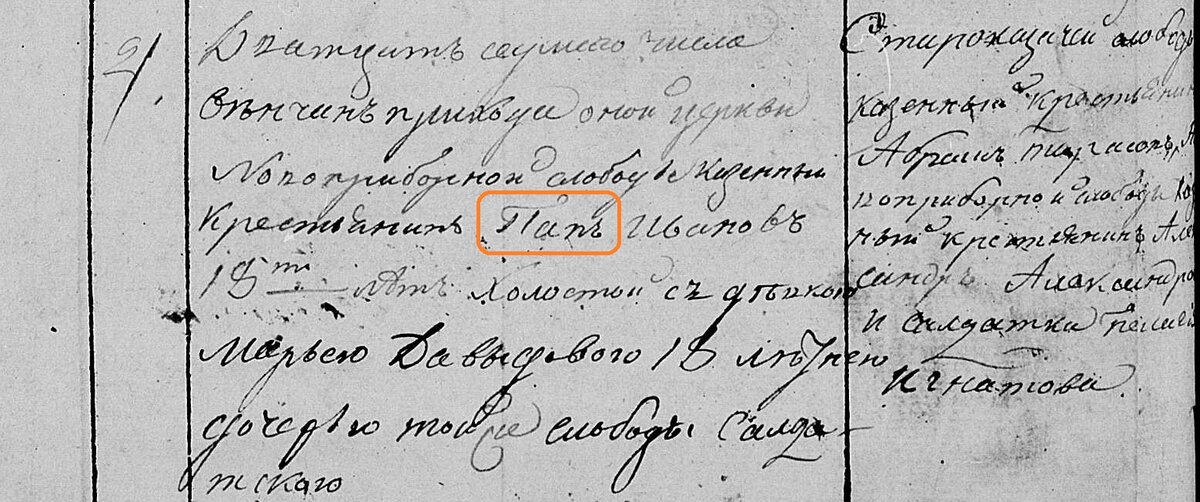 2/.
Дватцать седмаго числа
венчанъ приходу оной церкви
Новоприборной слободы казенный
крестьянинъ Папъ Ивановъ
18ти летъ холостой съ девкою
Марьею Давыдовою 18 летнею
дочерью той же слободы Салда-
тскаго
Староказачей слободы
казенный крестьянин
Абрам
воприборной слободы
ный крестьянинъ Але
сандръ Александро
и салдатка
Игнатова